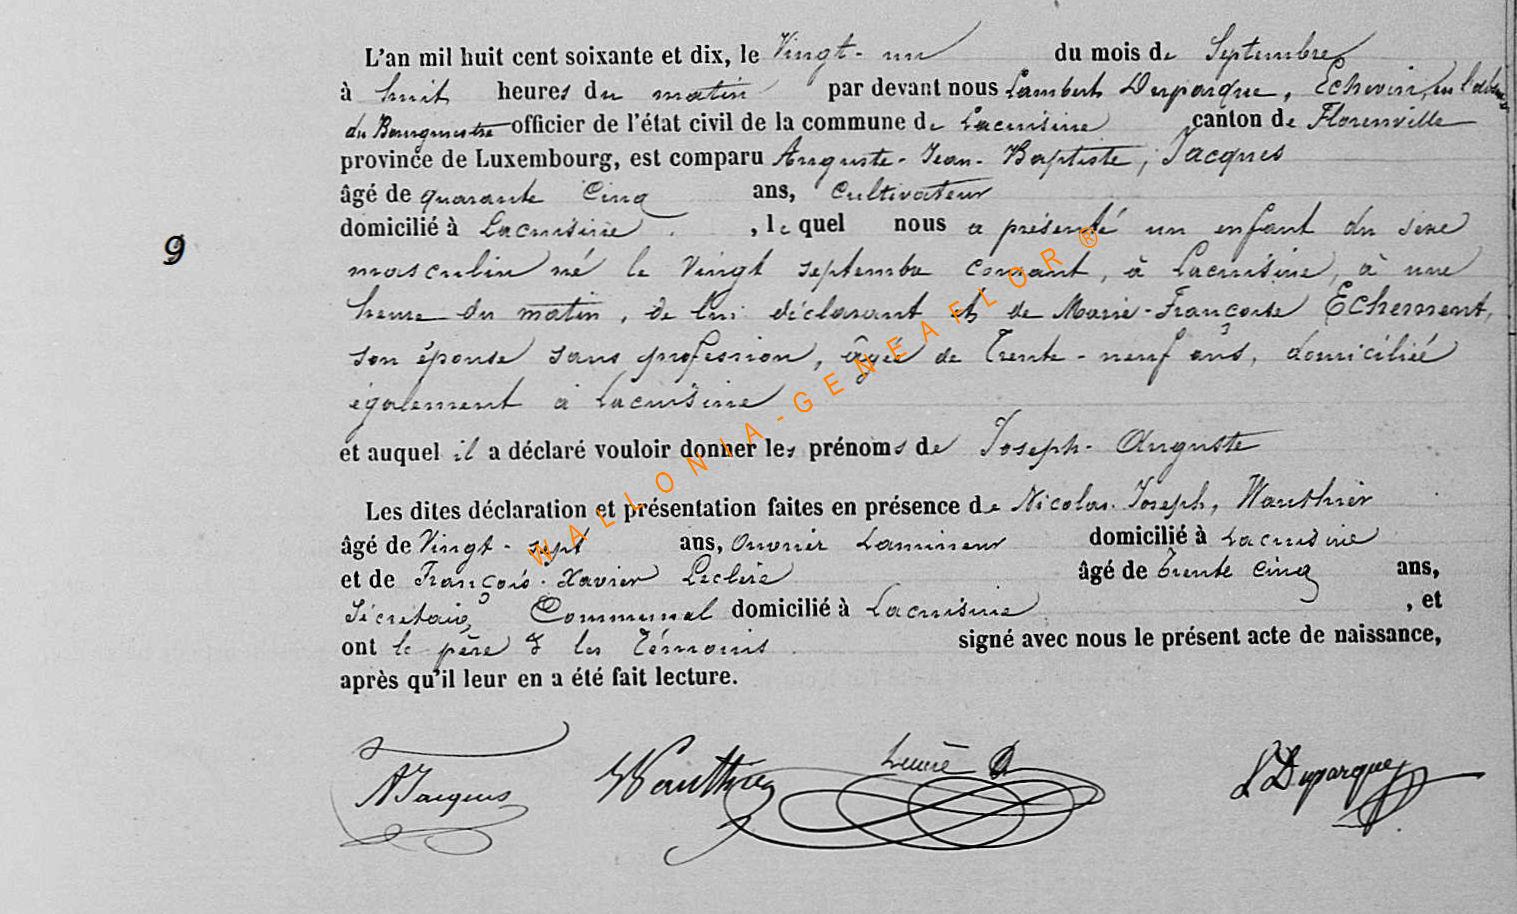 L'an mil huit cent soixante et dix, le Vingt-un du mois de Septembre
à huit heures du matin par devant nous Lambert Duparque, Echevin, en l'absence
du Bourgmestre officier de l'état civil de la commune de Lacuisine canton de Florenville
province de Luxembourg, est comparu Auguste-Jean-Baptiste, Jacques
âgé de quarante cinq ans, cultivateur
domicilié à Lacuisine, lequel nous a présenté un enfant du sexe
9
masculin né le vingt septembre courant, à Lacuisine, à une
heure du matin, de lui déclarant et de Marie-Françoise Echement,
son épouse sans profession, âgée de Trente-neuf ans, domiciliée
également à Lacuisine
et auquel il a déclaré vouloir donner les prénoms de Joseph-Auguste
Les dites déclaration et présentation faites en présence de Nicolas-Joseph, Wauthier
âgé de Vingt-sept ans, ouvrier Lamineur domicilié à Lacuisine
et de François-Xavier Leclère âgé de trente cinq ans,
Sécrétaire Communal domicilié à Lacuisine, et
ont le père & les Témoins signé avec nous le présent acte de naissance,
après qu'il leur en a été fait lecture.
AJacques Wauthier L Duparque
WALLONIA-GENEAFLOR ®